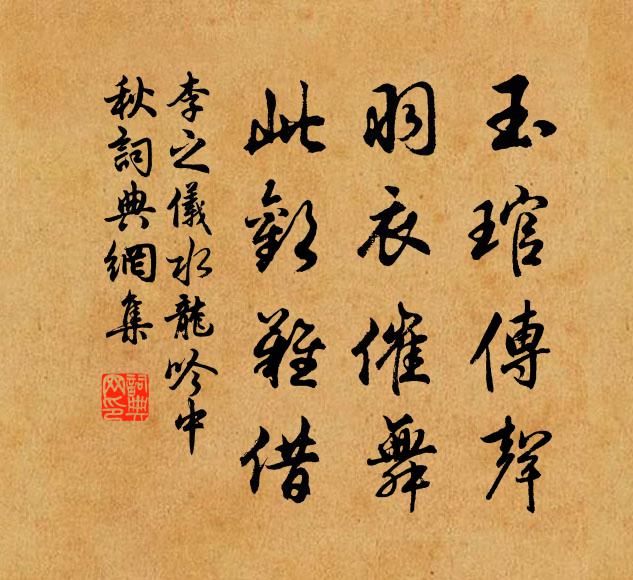 玉琯傳聲
羽衣催舞
此歡難借
李之儀水龍吟中
秋詞典網集
詞典網印